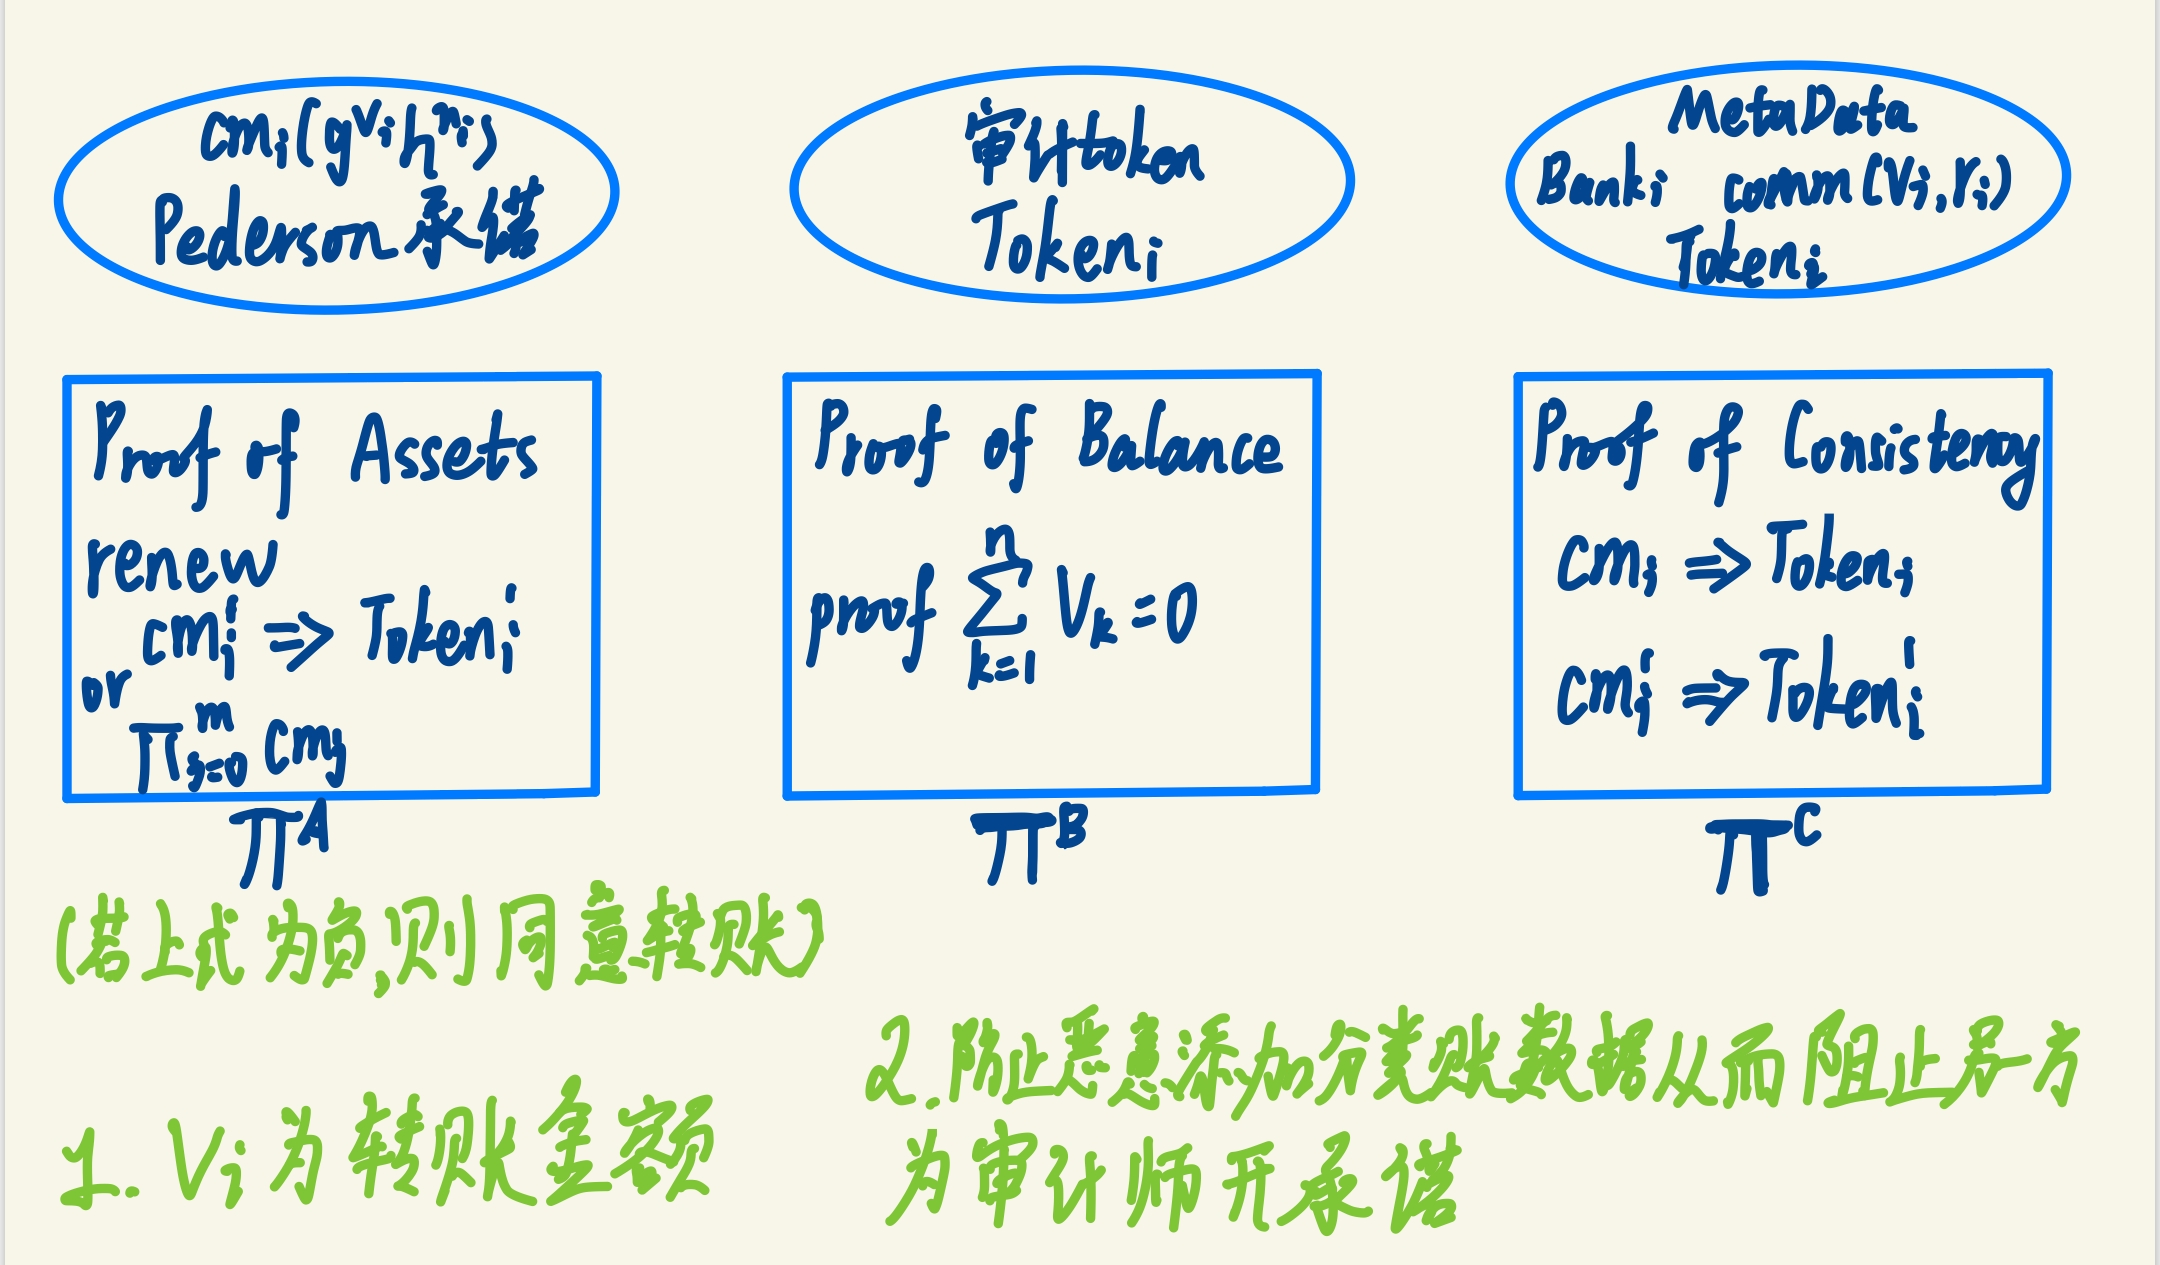 cmᵢ(g^vᵢ h^rᵢ)
Pederson承诺
审计token
Tokenᵢ
MetaData
Bankᵢ comm(vᵢ,rᵢ)
Tokenᵢ
Proof of Assets
renew
cmᵢ' ⇒ Tokenᵢ'
or
∏_{j=0}^{m} cmⱼ
π^A
Proof of Balance
proof ∑_{k=1}^{n} Vₖ=0
π^B
Proof of Consistency
cmᵢ ⇒ Tokenᵢ
cmᵢ' ⇒ Tokenᵢ'
π^C
(若上式为负,则同意转账)
1. Vᵢ为转账金额
2.防止恶意添加分类账数据从而阻止另一方
为审计师开承诺